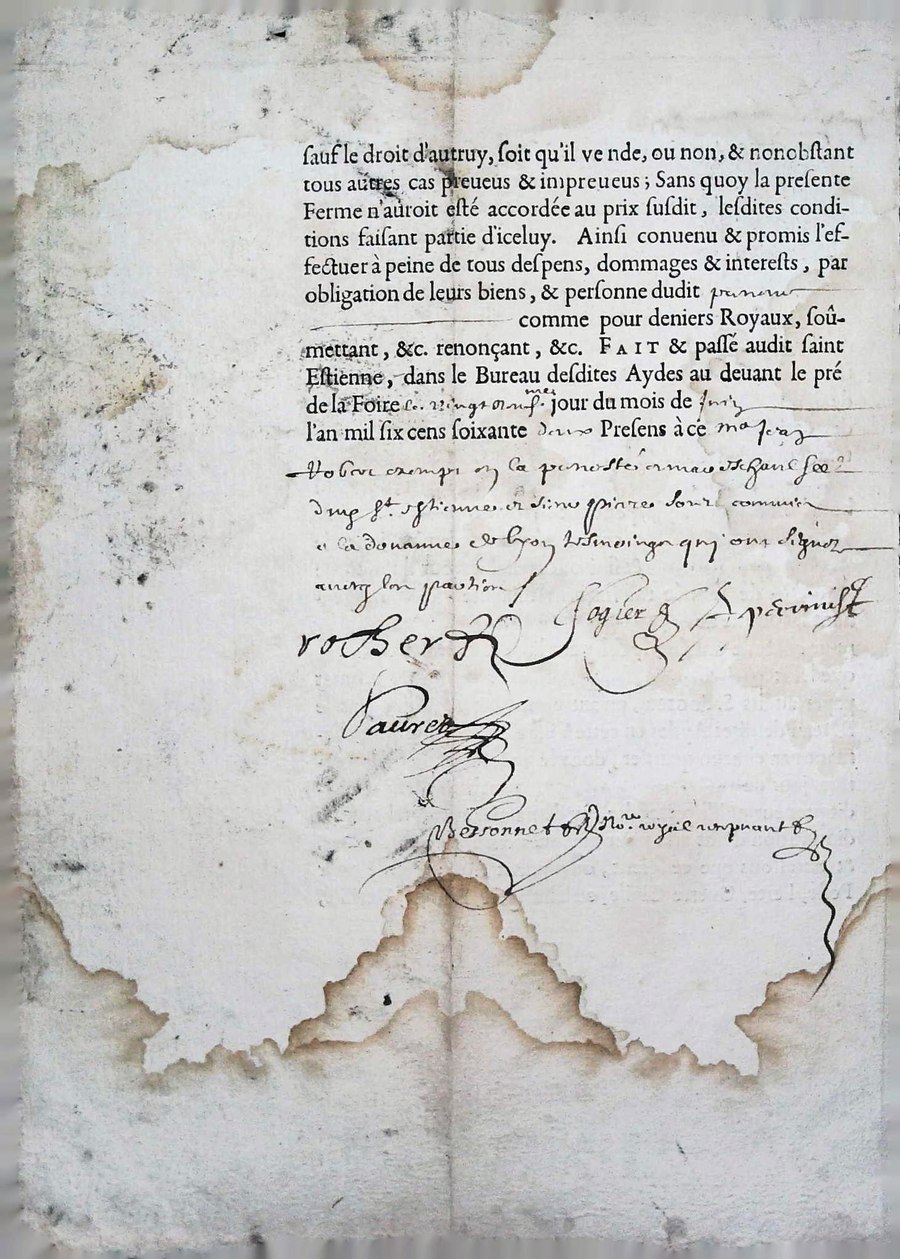 ſauf le droit d'autruy, ſoit qu'il ve nde, ou non, & nonobſtant
tous autres cas preueus & impreueus ; Sans quoy la preſente
Ferme n'auroit eſté accordée au prix ſuſdit, leſdites condi-
tions faiſant partie d'iceluy. Ainſi conuenu & promis l'ef-
fectuer à peine de tous deſpens, dommages & intereſts, par
obligation de leurs biens, & perſonne dudit preneur
comme pour deniers Royaux, ſoû-
mettant, &c. renonçant, &c. FAIT & paſſé audit ſaint
Eſtienne, dans le Bureau deſdites Aydes au deuant le pré
de la Foire le vingt neuf.me jour du mois de Juin
l'an mil ſix cens ſoixante deux Preſens à ce me Jean
Robert exempt en la
St. eſtienne et ſieur pierre commis
a la douanne de lyon teſmoings qui ont ſigné
avecq leſd parties
Jogier
robert
Pauret
Bessonnet no.re royal